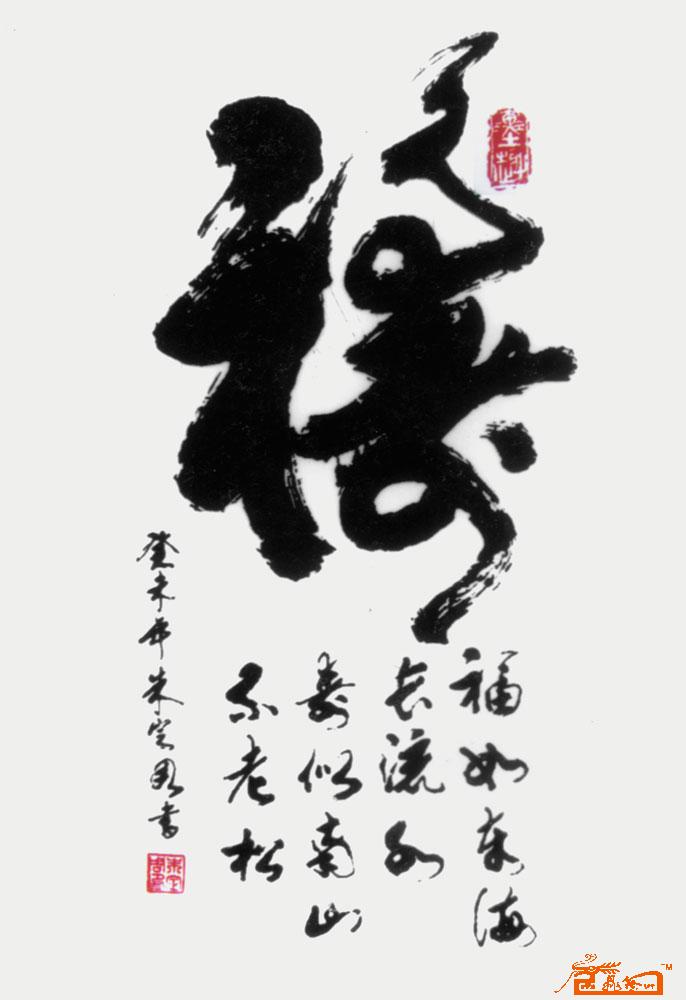 福如东海
长流水
寿似南山
不老松
癸未年朱宗书